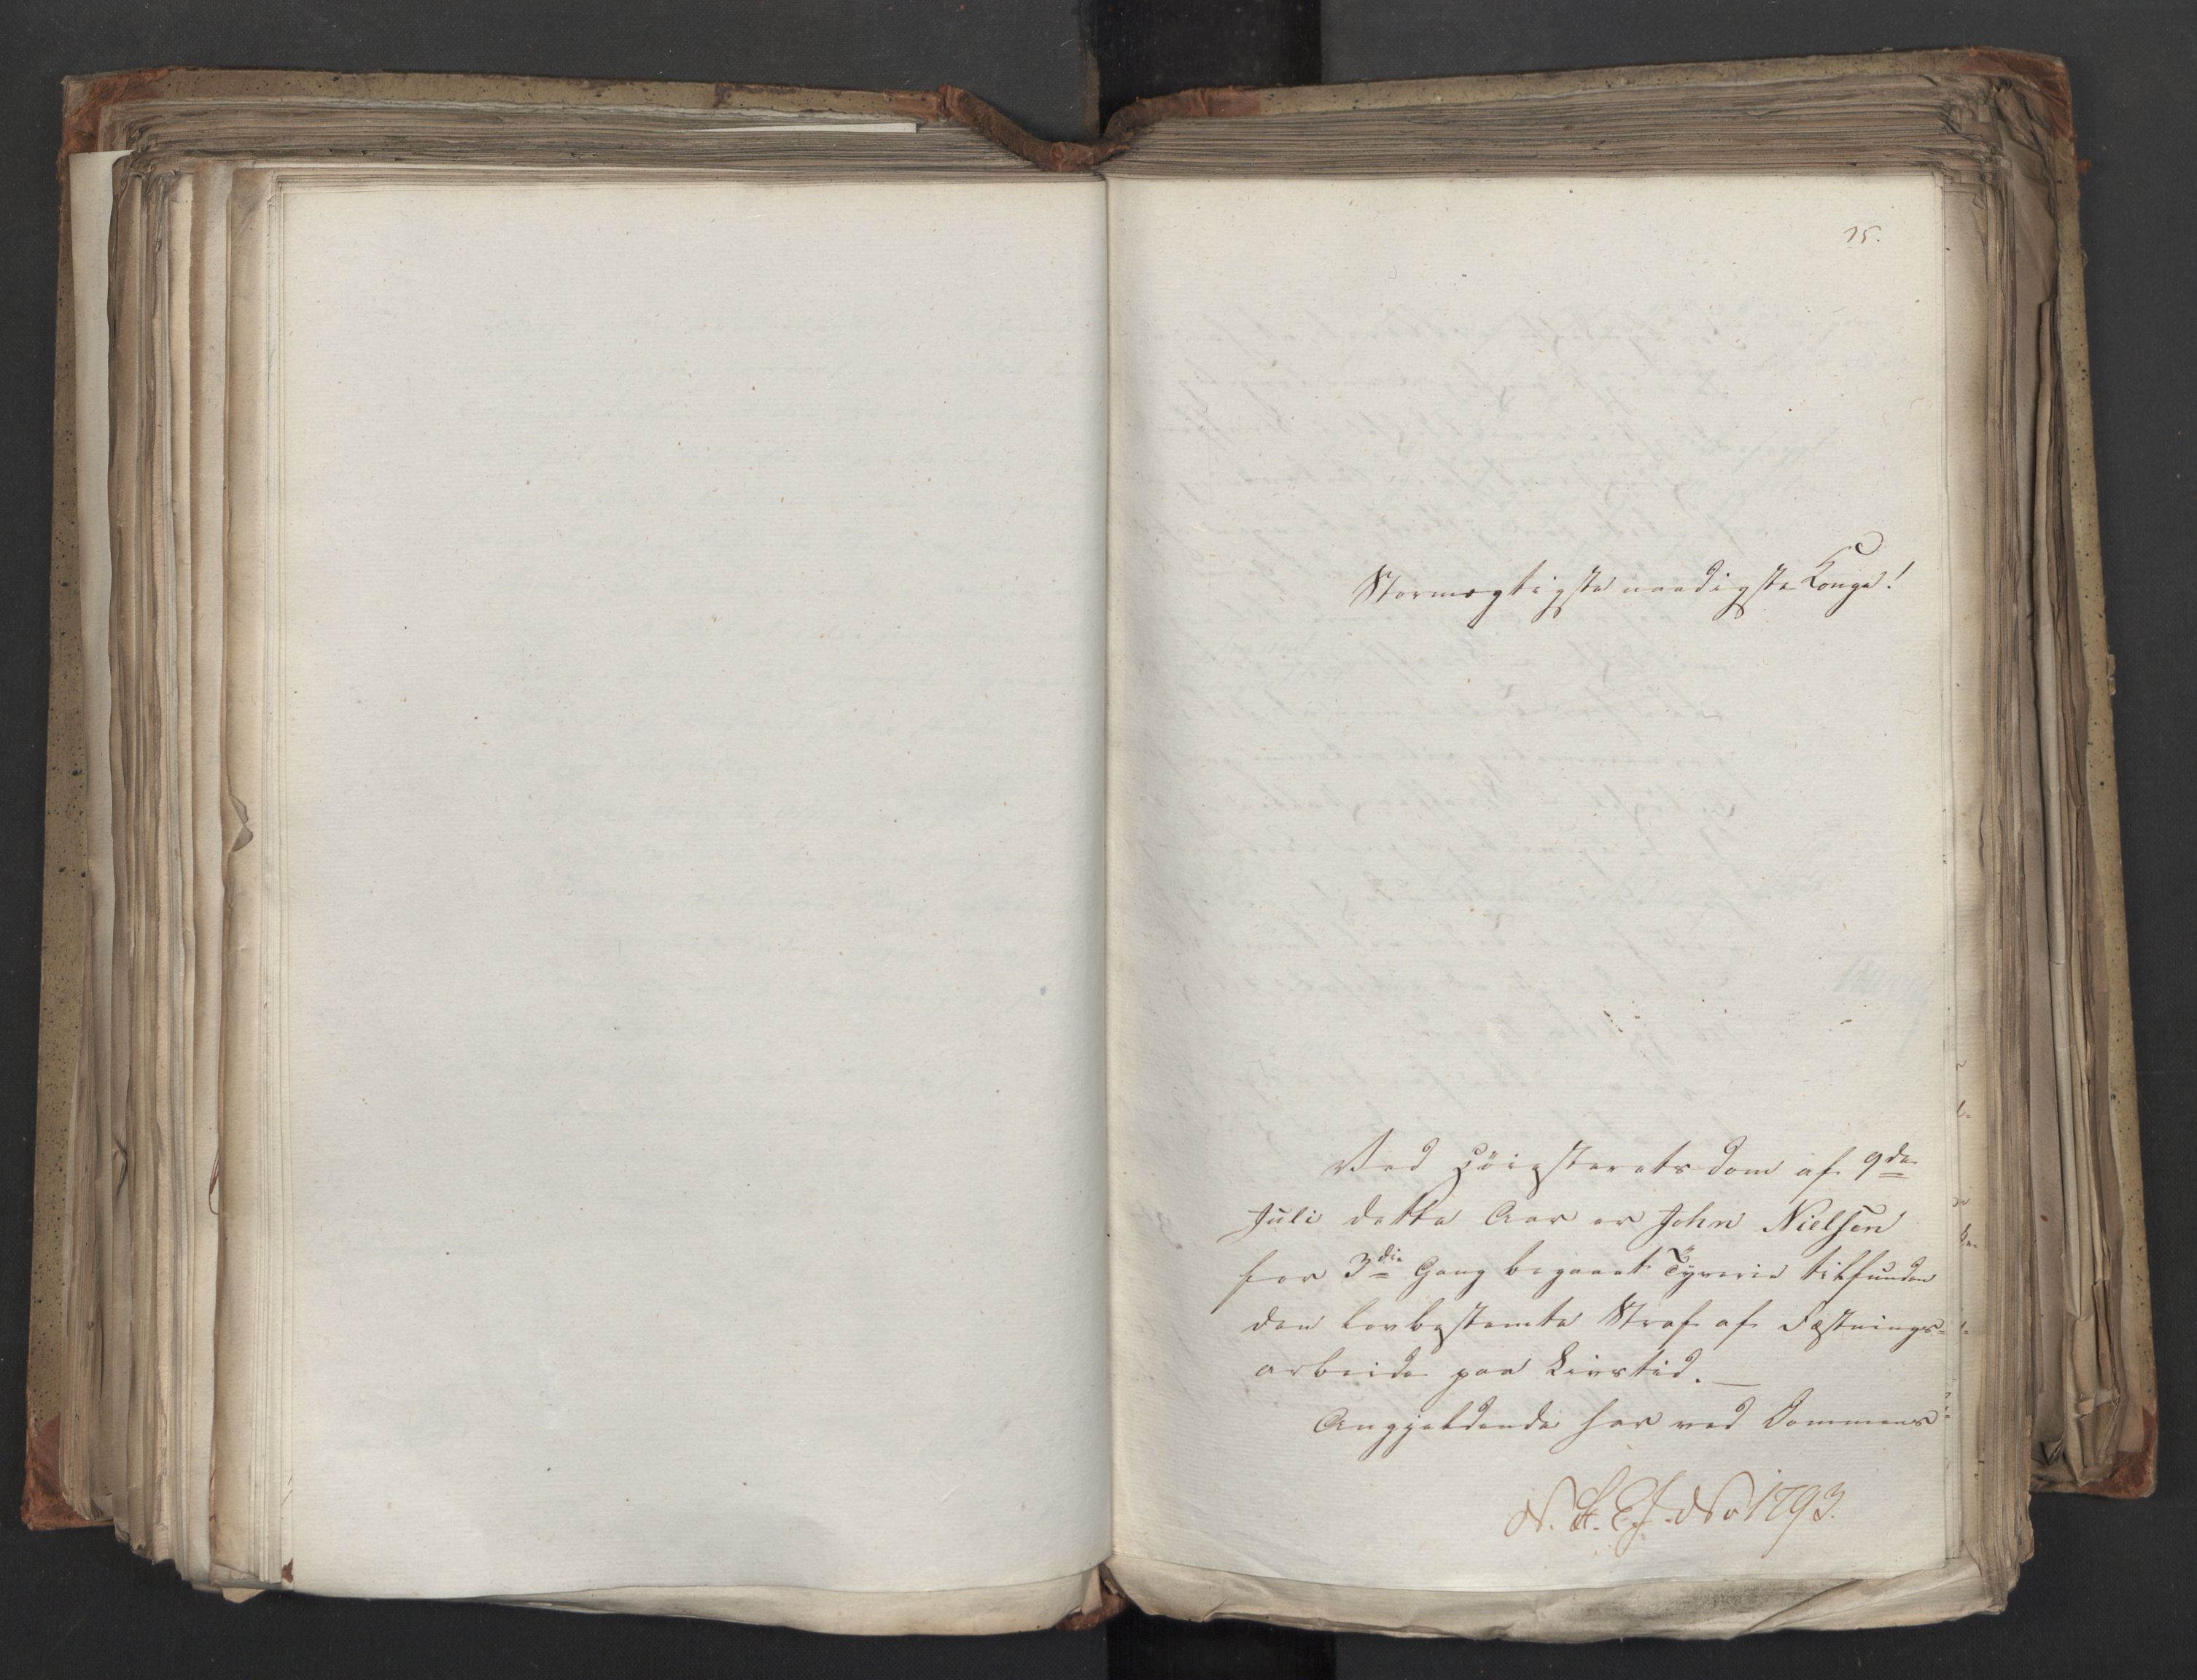 15.
Stormægtigste naadigste Konge!
Ved Høiesterets dom af 9de
Juli dette Aar er John Nielsen
for 3die Gang begaaet Tyverie tilfunden
den lovbestemte Straf af Fæstnings-
arbeide paa Livstid. —
Angjeldende har ved Dommens
No 1793.